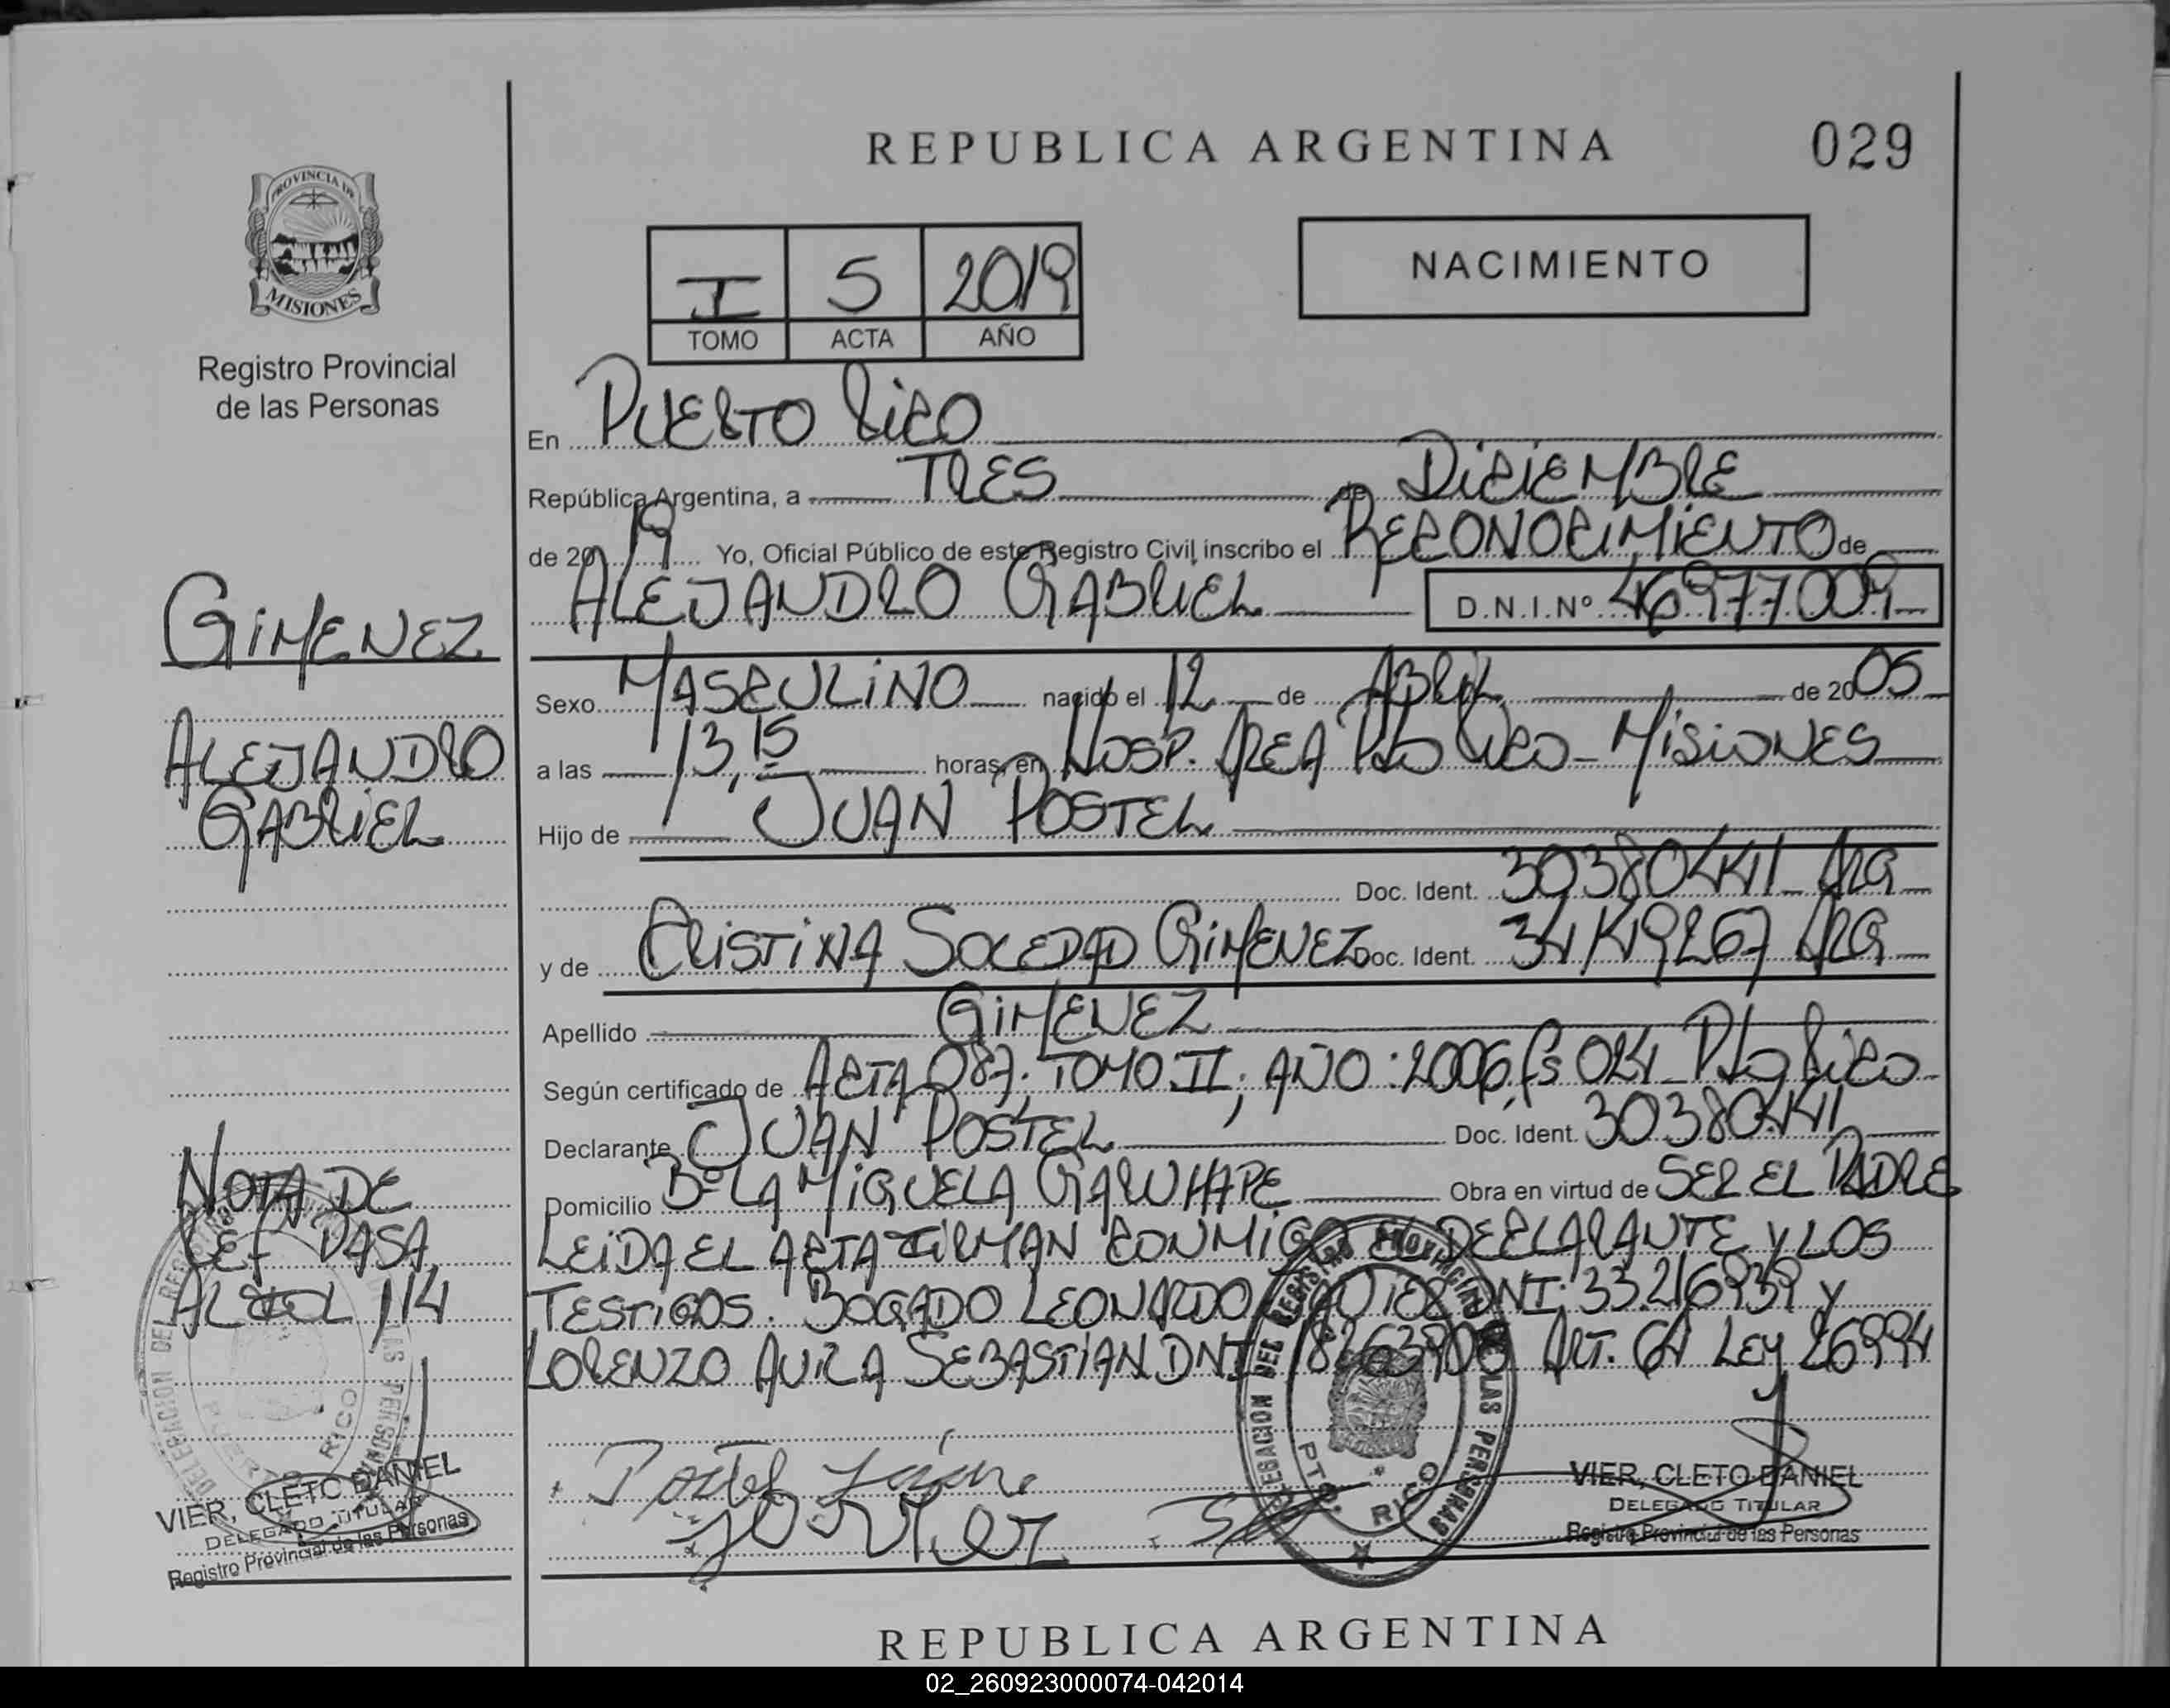 REPUBLICA ARGENTINA
029
PROVINCIA DE
MISIONES
Registro Provincial
de las Personas
I 5 2019
TOMO ACTA AÑO
NACIMIENTO
En PUERTO RICO
República Argentina, a TRES de DICIEMBRE
de 2019 Yo, Oficial Público de este Registro Civil inscribo el RECONOCIMIENTO de
ALEJANDRO GABRIEL D.N.I.Nº 46977009
GIMENEZ
ALEJANDRO
GABRIEL
Sexo MASCULINO nacido el 12 de ABRIL de 2005
a las 13,15 horas, en HOSP. AREA Pto RICO - MISIONES
Hijo de JUAN POSTEL
Doc. Ident. 30380441 ARG
y de CRISTINA SOLEDAD GIMENEZ Doc. Ident. 34449267 ARG
Apellido GIMENEZ
Según certificado de ACTA 087. TOMO II, AÑO: 2006, fs 024 Pto RICO
Declarante JUAN POSTEL Doc. Ident. 30380441
Domicilio Bº LA MIGUELA GARUHAPE Obra en virtud de SER EL PADRE
LEIDA EL ACTA FIRMAN CONMIGO EL DECLARANTE Y LOS
TESTIGOS. BOGADO LEONARDO DNI: 33.216939 y
LORENZO AVILA SEBASTIAN DNI ART. 64 LEY 26994
NOTA DE
REF PASA
AL 114
Postel Juan
DELEGACION DEL REGISTRO PROVINCIAL DE LAS PERSONAS
PTO. RICO
VIER, CLETO DANIEL
DELEGADO TITULAR
Registro Provincial de las Personas
VIER, CLETO DANIEL
DELEGADO TITULAR
Registro Provincial de las Personas
REPUBLICA ARGENTINA
02_260923000074-042014